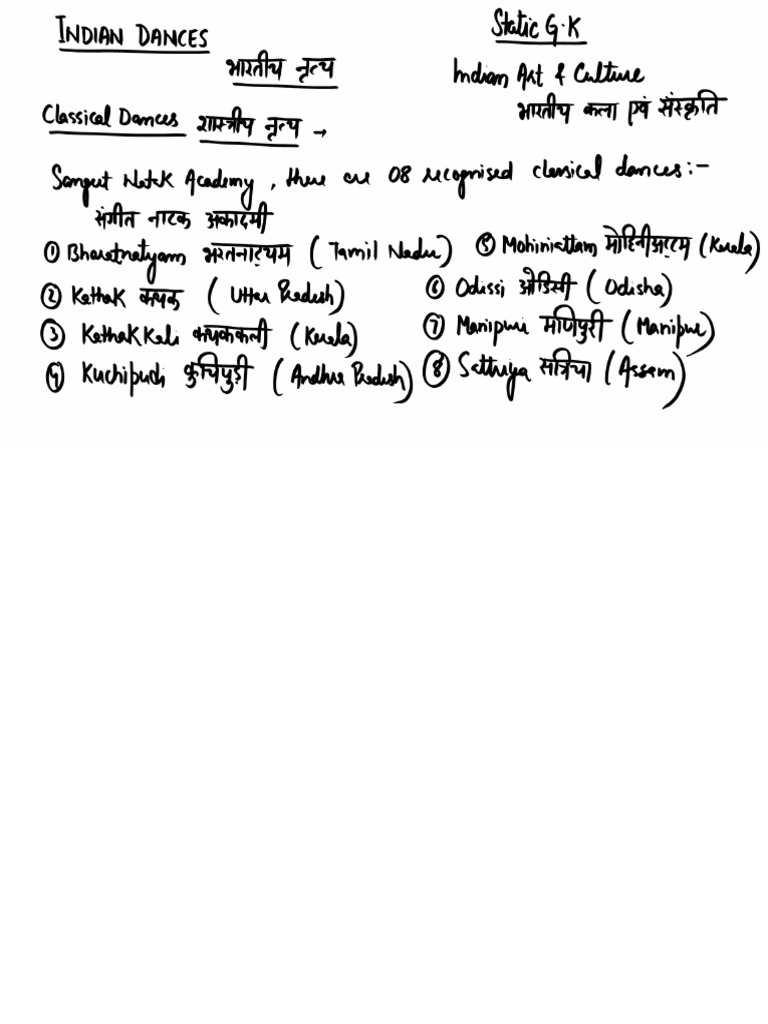 INDIAN DANCES
भारतीय नृत्य
Static G.K
Indian Art & Culture
भारतीय कला एवं संस्कृति
Classical Dances शास्त्रीय नृत्य →
Sangeet Natak Academy, there are 08 recognised classical dances:-
संगीत नाटक अकादमी
① Bharatnatyam भरतनाट्यम (Tamil Nadu)
② Kathak कथक (Uttar Pradesh)
③ Kathakkali कथककली (Kerala)
④ Kuchipudi कुचिपुड़ी (Andhra Pradesh)
⑤ Mohiniattam मोहिनीअट्टम (Kerala)
⑥ Odissi ओडिसी (Odisha)
⑦ Manipuri मणिपुरी (Manipur)
⑧ Sattriya सत्रिया (Assam)